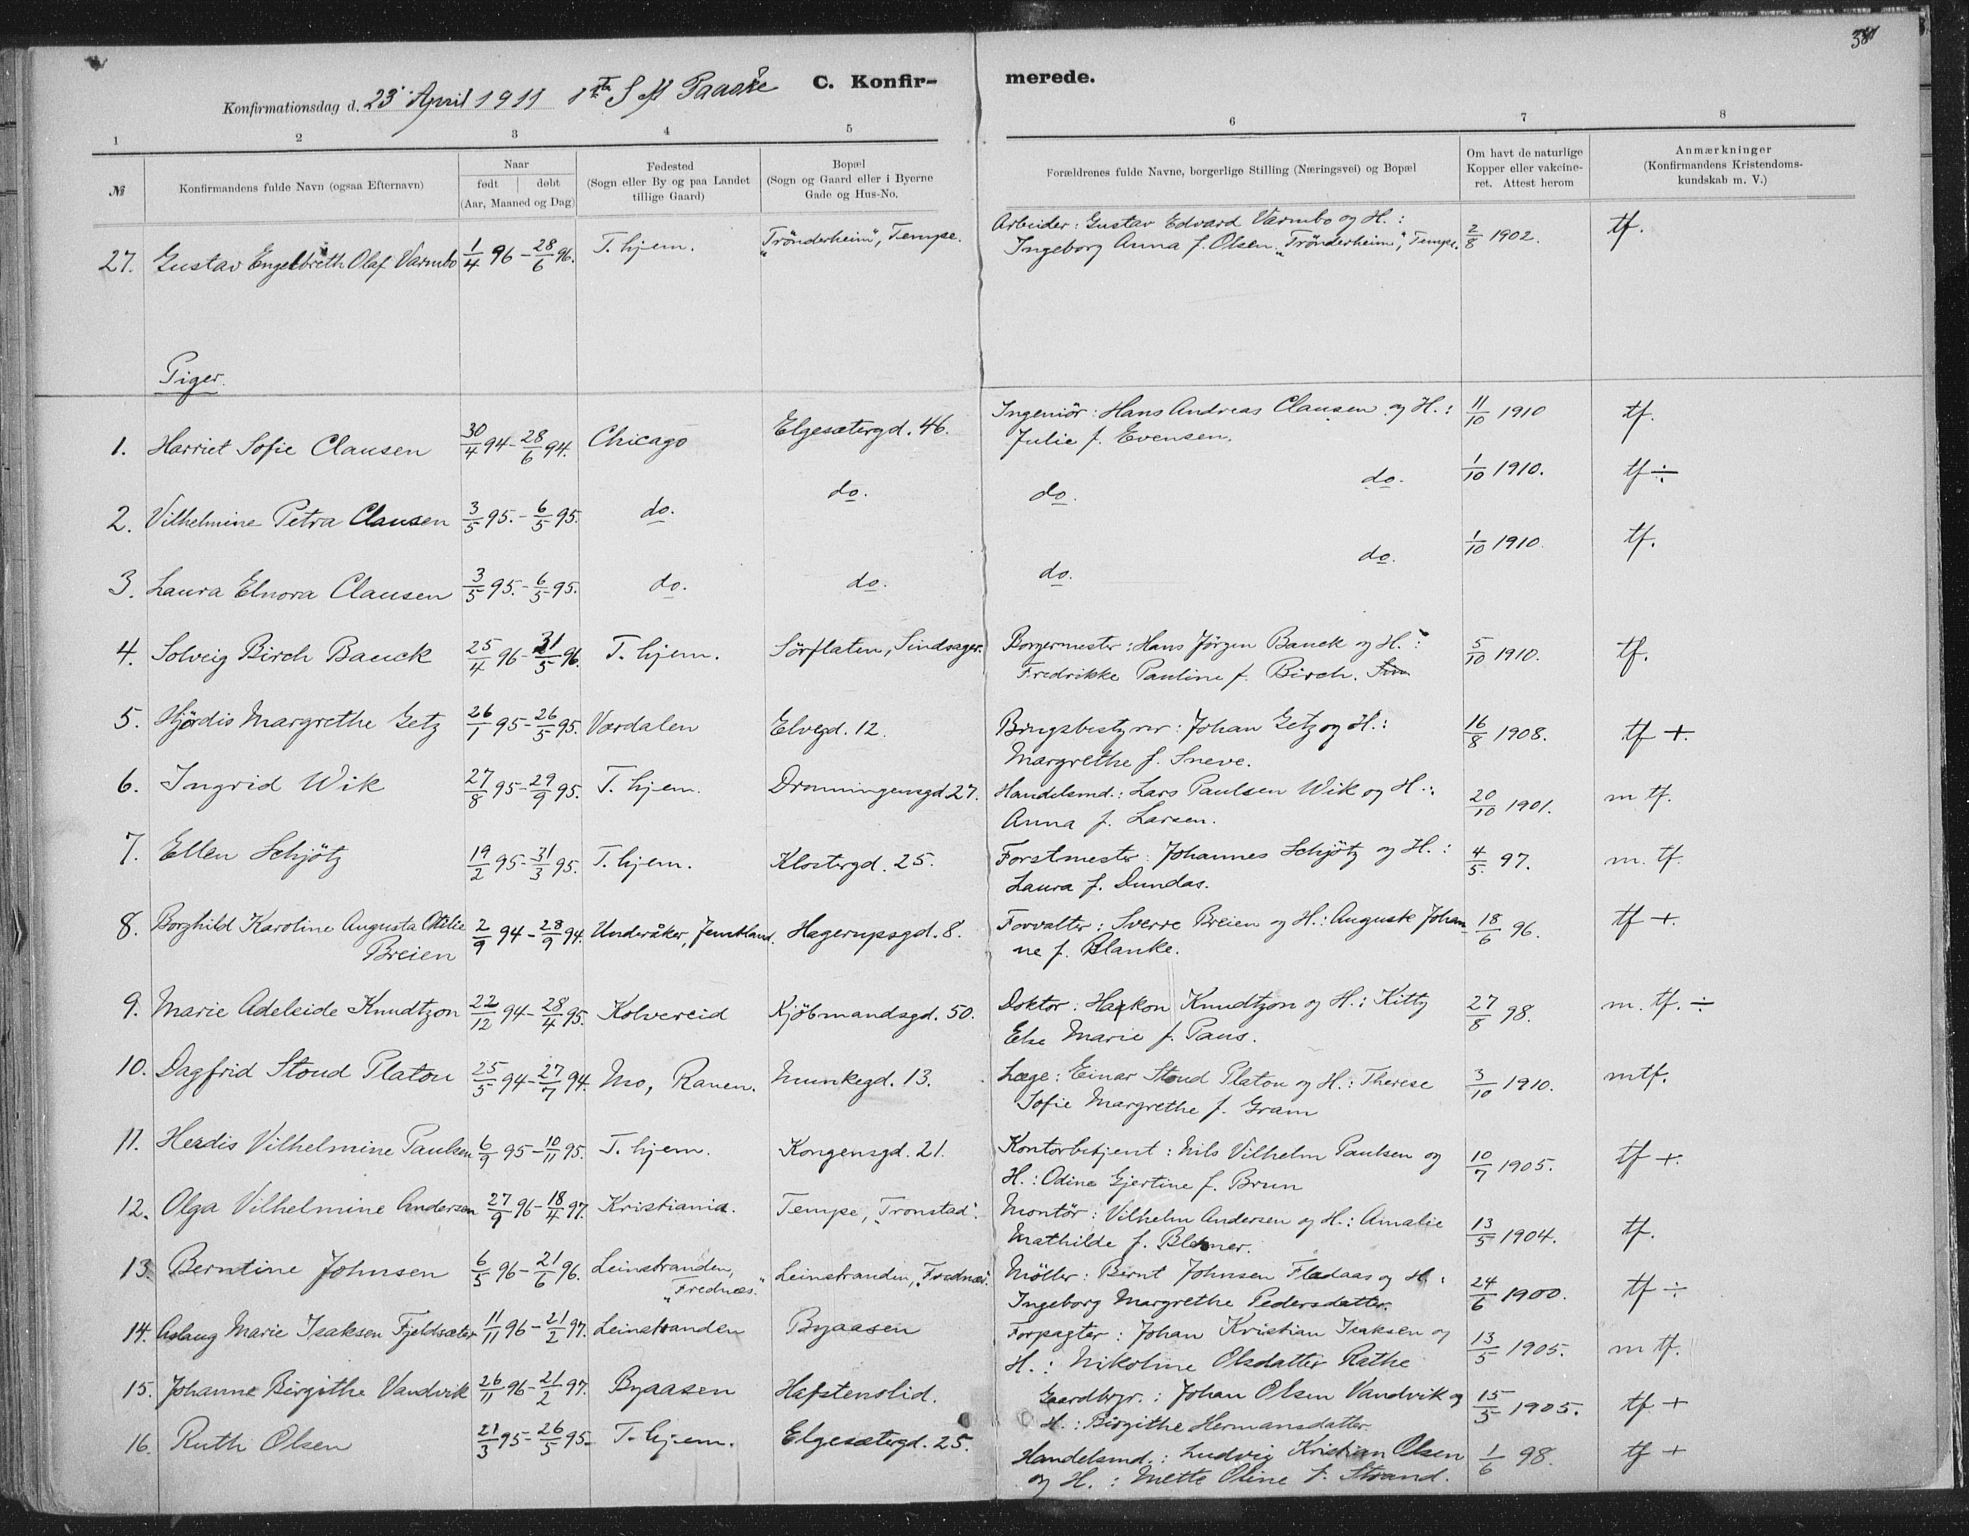 381
Konfirmationsdag d. 23' April 1911 1ste S M Paaske C. Konfirmerede.
1 2 3 4 5 6 7 8
№ Konfirmandens fulde Navn (ogsaa Efternavn) Naar født døbt (Aar, Maaned og Dag) Fødested (Sogn eller By og paa Landet tillige Gaard) Bopæl (Sogn og Gaard eller i Byerne Gade og Hus-No. Forældrenes fulde Navne, borgerlige Stilling (Næringsvei) og Bopæl Om havt de naturlige Kopper eller vakcineret. Attest herom Anmærkninger (Konfirmandens Kristendomskundskab m. V.)
27. Gustav Engelbreth Olaf Varmbo 1/4 96 - 28/6 96. T. hjem. "Trönderheim", Tempe. Arbeider: Gustav Edvard Varmbo og H.: 2/8 1902. tf.
Ingeborg Anna f. Olsen. "Trönderheim", Tempe.
Piger.
1. Harriet Sofie Clausen 30/4 94 - 28/6 94. Chicago Elgesætergd. 46. Ingeniör: Hans Andreas Clausen og H.: 11/10 1910 tf.
Julie f. Evensen.
2. Vilhelmine Petra Clausen 3/5 95. - 6/5 95. do. do. do. do. 1/10 1910. tf ÷
3. Laura Elnora Clausen 3/5 95. - 6/5 95. do. do. do. do. 1/10 1910. tf.
4. Solveig Birch Bauck 25/4 96 - 31/5 96. T. hjem. Sörflaten, Sindsager. Borgermester: Hans Jörgen Bauck og H.: 5/10 1910. tf.
Fredrikke Pauline f. Birch.
5. Hjördis Margrethe Getz 26/1 95 - 26/5 95. Værdalen Elvegd. 12. Brugsbestyrer: Johan Getz og H.: 16/8 1908. tf +.
Margrethe f. Sneve.
6. Ingrid Wik 27/8 95 - 29/9 95. T. hjem. Dronningensgd 27. Handelsmd.: Lars Paulsen Wik og H.: 20/10 1901. m tf.
Anna f. Larsen.
7. Ellen Schjötz 19/2 95 - 31/3 95. T. hjem. Klostergd. 25. Forstmester: Johannes Schjötz og H.: 4/5 97. m. tf.
Laura f. Dundas.
8. Borghild Karoline Augusta Otilie 2/9 94 - 28/9 94. Underåker, Jemtland. Hagerupsgd. 8. Forvalter: Sverre Breien og H.: Auguste Johan- 18/6 96. tf +
Breien ne f. Blanke.
9. Marie Adeleide Knudtzon 22/12 94 - 28/4 95. Kolvereid Kjöbmandsgd. 50. Doktor: Haakon Knudtzon og H.: Kitty 27/8 98. m. tf. ÷
Else Marie f. Paus.
10. Dagfrid Stoud Platou 25/5 94 - 27/7 94. Mo, Ranen. Munkegd. 13. Læge: Einar Stoud Platou og H.: Therese 3/10 1910. mtf.
Sofie Margrethe f. Gram
11. Herdis Vilhelmine Paulsen 6/9 95 - 10/11 95. T. hjem. Kongensgd. 21. Kontorbetjent: Nils Vilhelm Paulsen og 10/7 1905. tf +.
H.: Odine Gjertine f. Brun
12. Olga Vilhelmine Andersen 27/9 96 - 18/4 97. Kristiania. Tempe, "Tronstad". Montör: Vilhelm Andersen og H.: Amalie 13/5 1904. tf.
Mathilde f.
13. Berntine Johnsen 6/5 96 - 21/6 96. Leinstranden, Leinstranden, "Frednæs". Möller: Bernt Johnsen Fladaas og H.: 24/6 1900. tf ÷
"Frednæs." Ingeborg Margrethe Pedersdatter.
14. Aslaug Marie Isaksen Fjeldsæter 11/11 96 - 21/2 97. Leinstranden Byaasen Forpagter: Johan Kristian Isaksen og 13/5 1905. m tf.
H.: Nikoline Olsdatter Rathe
15. Johanne Birgithe Vandvik 26/11 96 - 21/2 97. Byaasen Hafstenslid. Gaardbrgr.: Johan Olsen Vandvik og 15/5 1905. tf +
H.: Birgithe Hermansdatter
16. Ruth Olsen 21/3 95 - 26/5 95. T. hjem. Elgesætergd. 25. Handelsmd.: Ludvig Kristian Olsen 1/6 98. tf +
og H.: Mette Oline f. Strand.